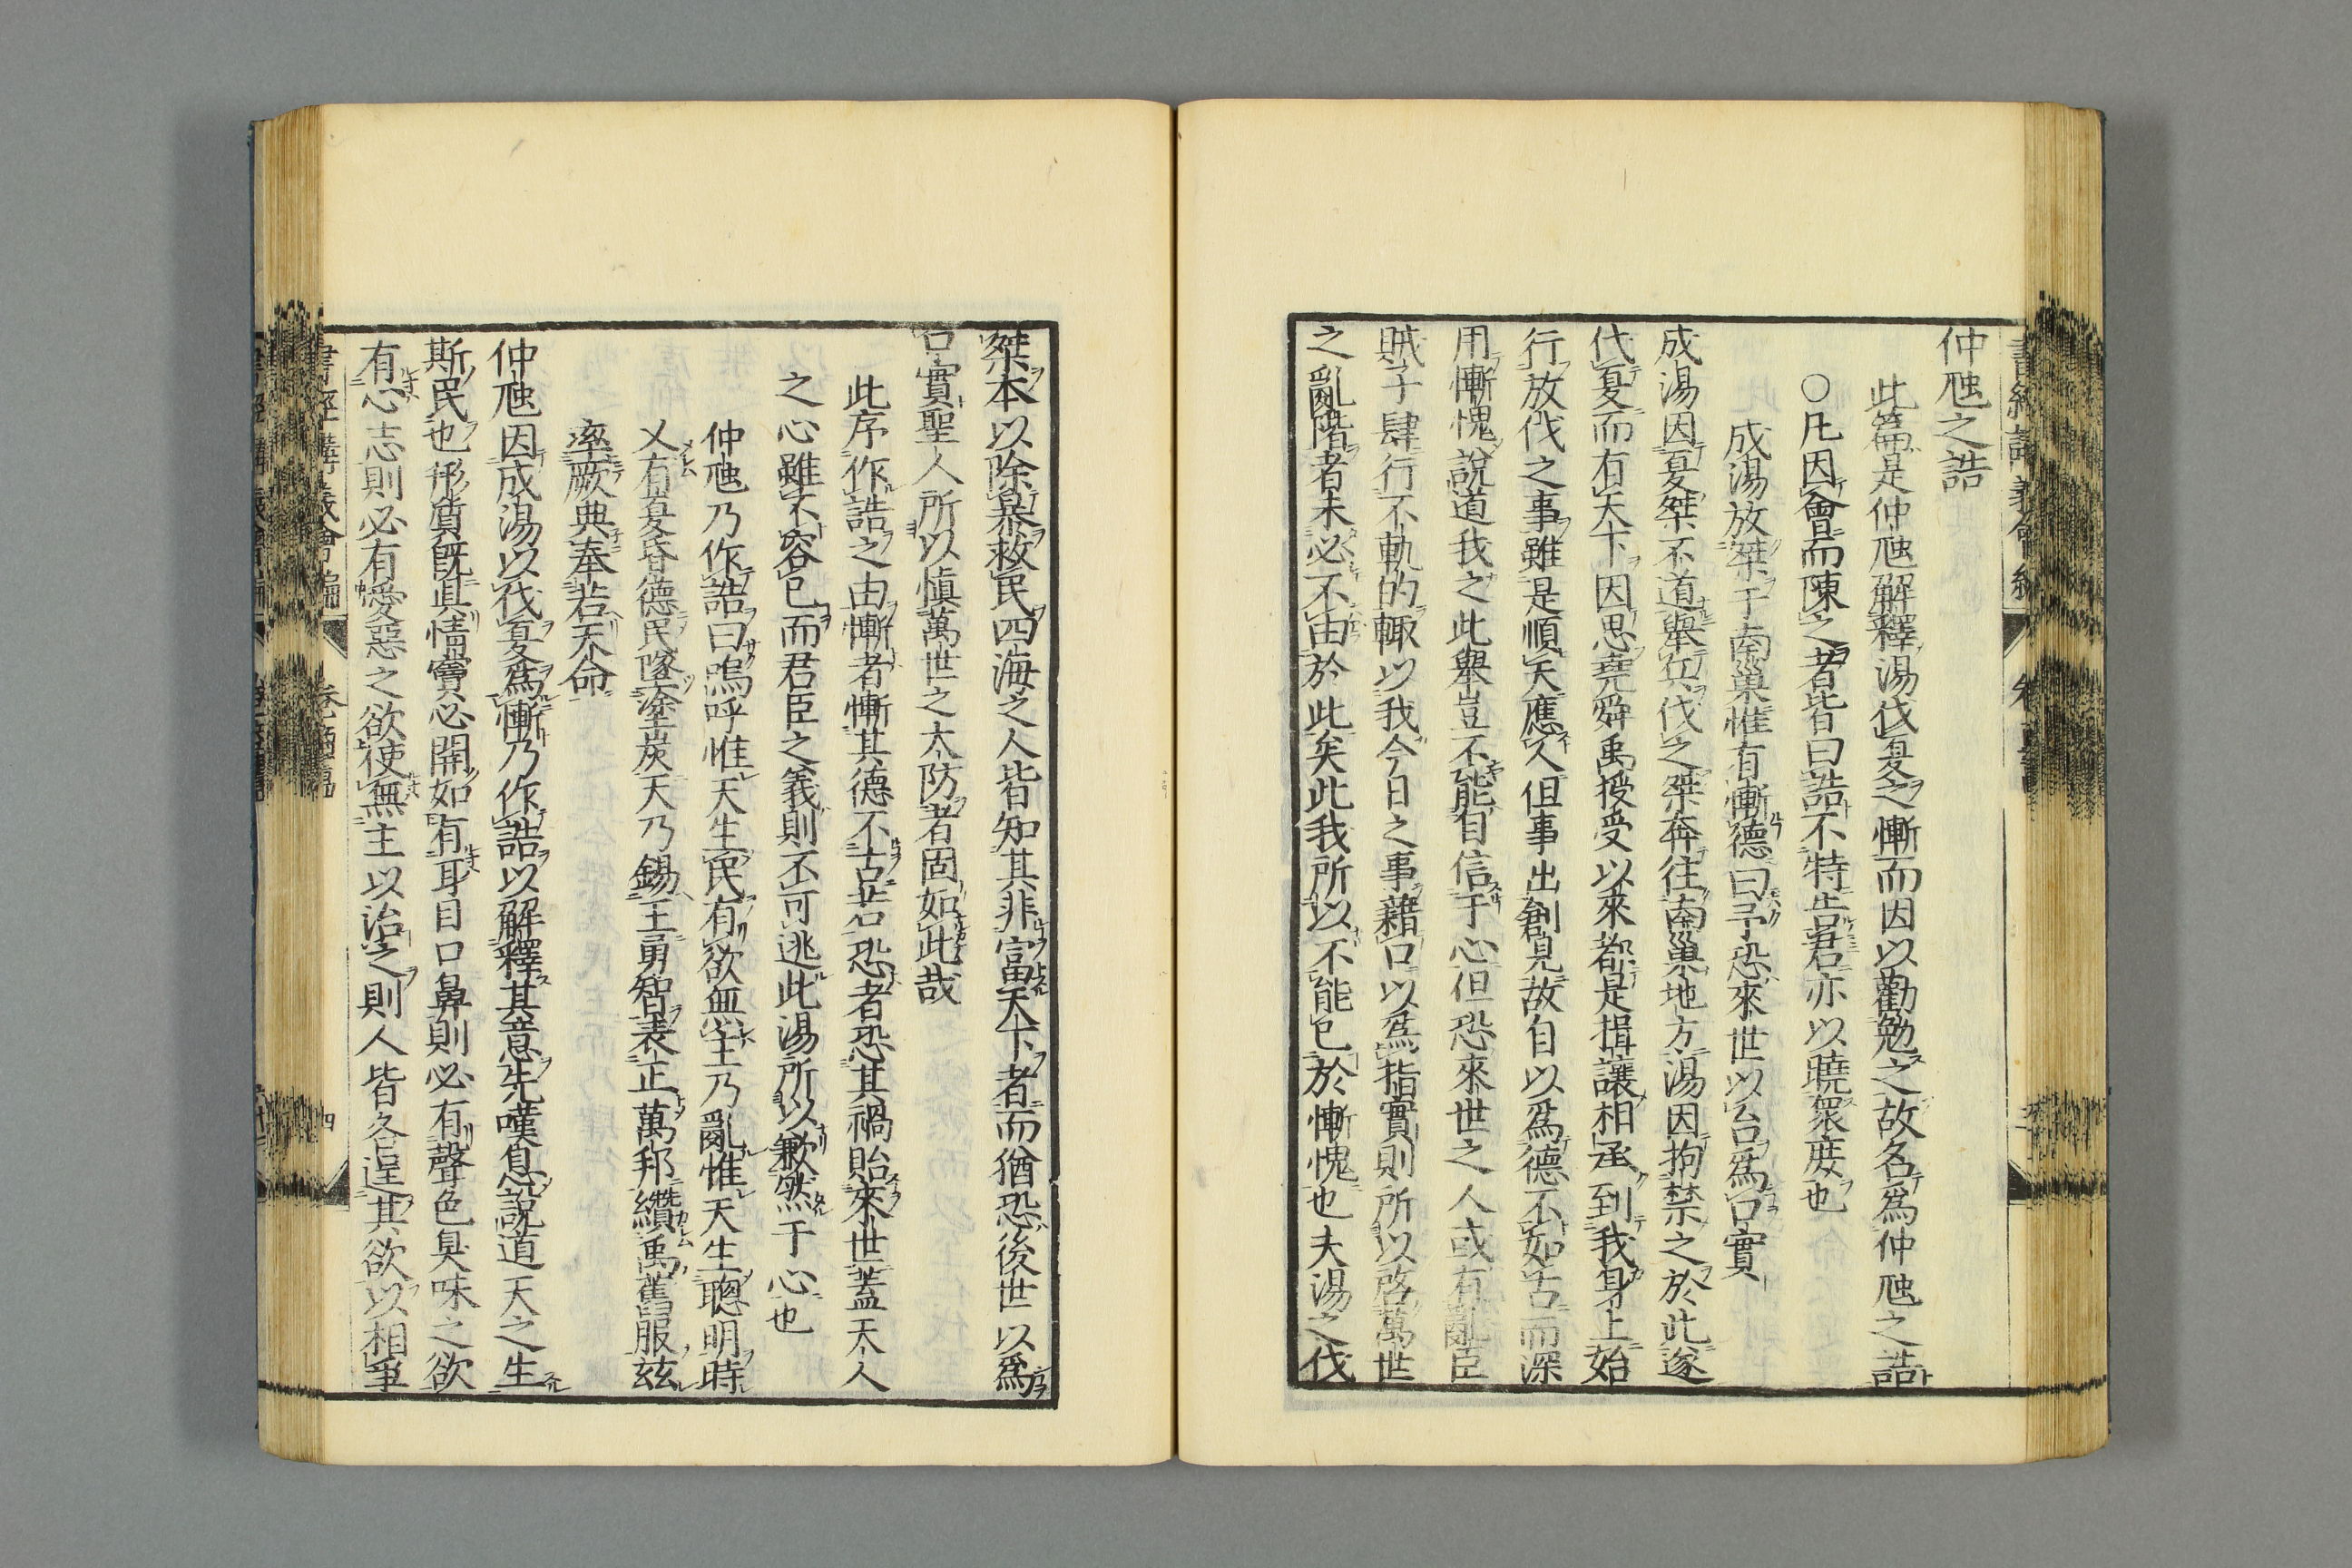 仲虺之誥
此篇是仲虺解釋湯伐夏之慚而因以勸勉之故名爲仲虺之誥
○凡因會而陳之者皆曰誥不特告君亦以曉衆庶也
成湯放桀于南巢惟有慚德曰予恐來世以台爲口實
成湯因夏桀不道舉兵伐之桀奔往南巢地方湯因拘禁之於此遂
代夏而有天下因思堯舜禹授受以來都是揖讓相承到我身上始
行放伐之事雖是順天應人但事出創見故自以爲德不如古而深
用慚愧說道我之此舉豈不能自信于心但恐來世之人或有亂臣
賊子肆行不軌的輙以我今日之事藉口以爲指實則所以啓萬世
之亂階者未必不由於此矣此我所以不能已於慚愧也夫湯之伐
桀本以除暴救民四海之人皆知其非富天下者而猶恐後世以爲
口實聖人所以愼萬世之大防者固如此哉
此序作誥之由慚者慚其德不古若恐者恐其禍貽來世蓋天人
之心雖不容已而君臣之義則不可逃此湯所以歉然于心也
仲虺乃作誥曰嗚呼惟天生民有欲無主乃亂惟天生聰明時
乂有夏昏德民墜塗炭天乃錫王勇智表正萬邦纘禹舊服茲
率厥典奉若天命
仲虺因成湯以伐夏爲慚乃作誥以解釋其意先嘆息說道天之生
斯民也形質旣具情竇必開如有耳目口鼻則必有聲色臭味之欲
有心志則必有愛惡之欲使無主以治之則人皆各逞其欲以相爭
書經講義會編
四